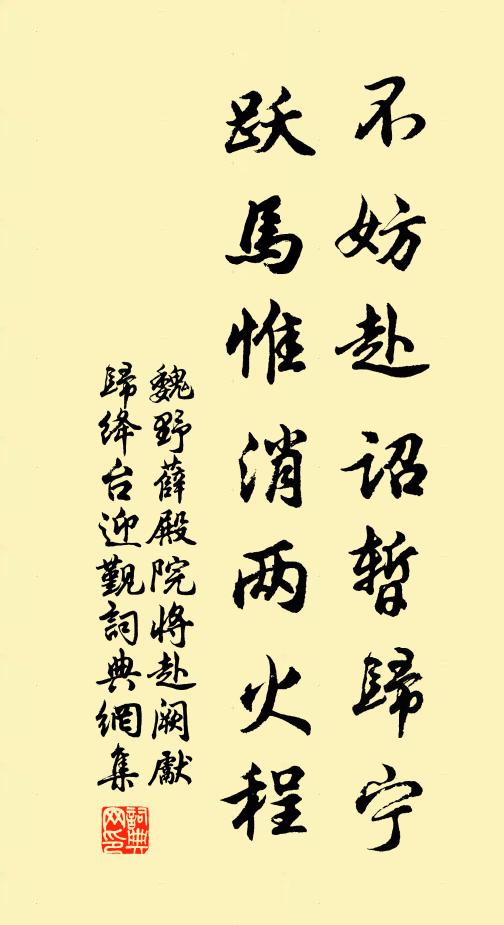 不妨赴诏暂歸宁
跃馬惟消两火程
魏野薛殿院将赴阙獻
歸绛台迎觐詞典網集
詞典网印